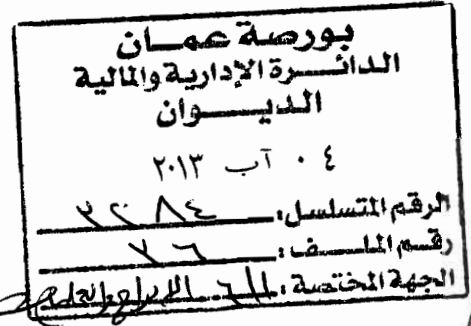 بورصة عمان
الدائرة الإدارية والمالية
الديوان
٠٤ آب ٢٠١٣
الرقم المتسلسل:
رقم الملف:
الجهة المختصة: الإدراج